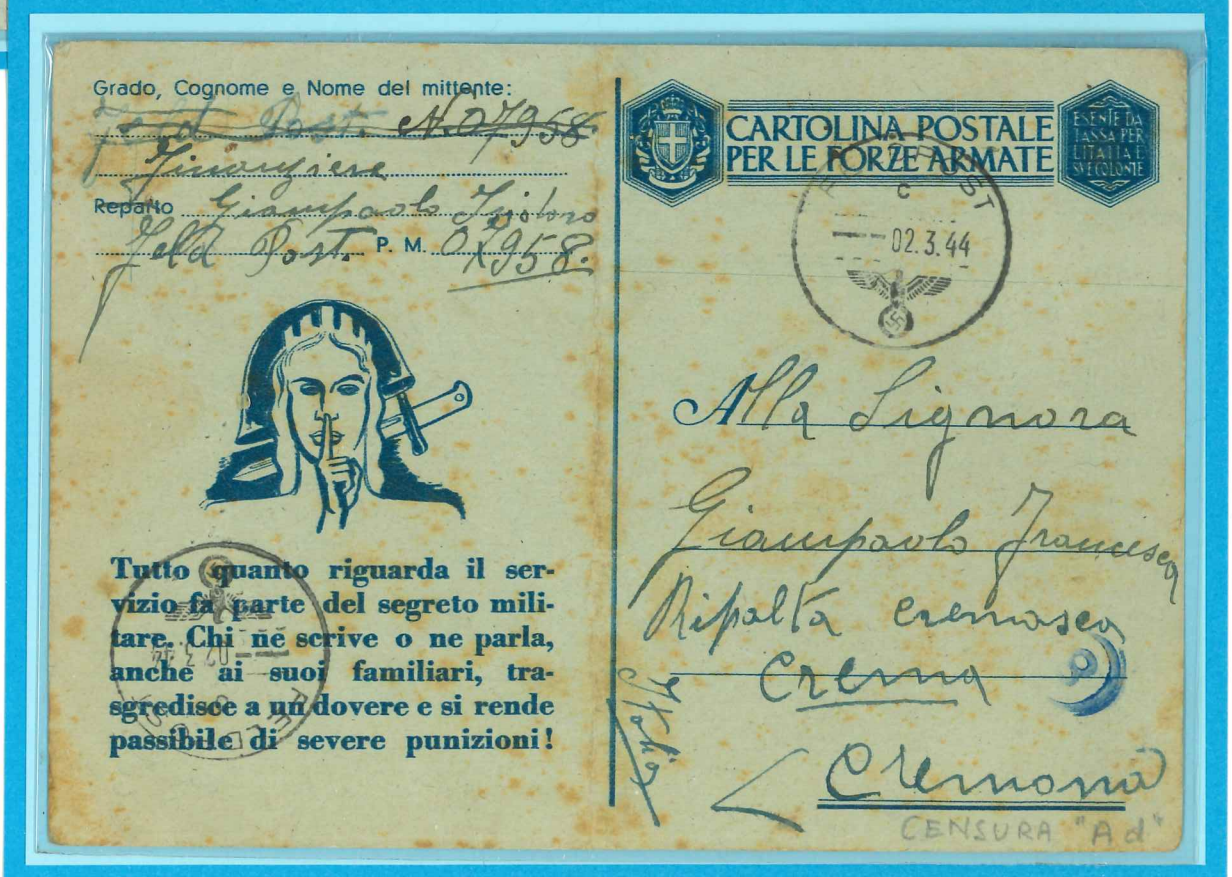 Grado, Cognome e Nome del mittente:
Feld Post. N. 07958.
Finanziere
Reparto Giampaolo Isidoro
Feld Post. P. M. 07958.
Tutto quanto riguarda il ser-
vizio fa parte del segreto mili-
tare. Chi ne scrive o ne parla,
anche ai suoi familiari, tra-
sgredisce a un dovere e si rende
passibile di severe punizioni!
FELDPOST
c
02.3.44
CARTOLINA POSTALE
PER LE FORZE ARMATE
ESENTE DA
TASSA PER
L'ITALIA E
SVE COLONIE
FELDPOST
c
02.3.44
Alla Signora
Giampaolo Francesca
Ripalta cremasca
Crema
Cremona
Italia
CENSURA "Ad"